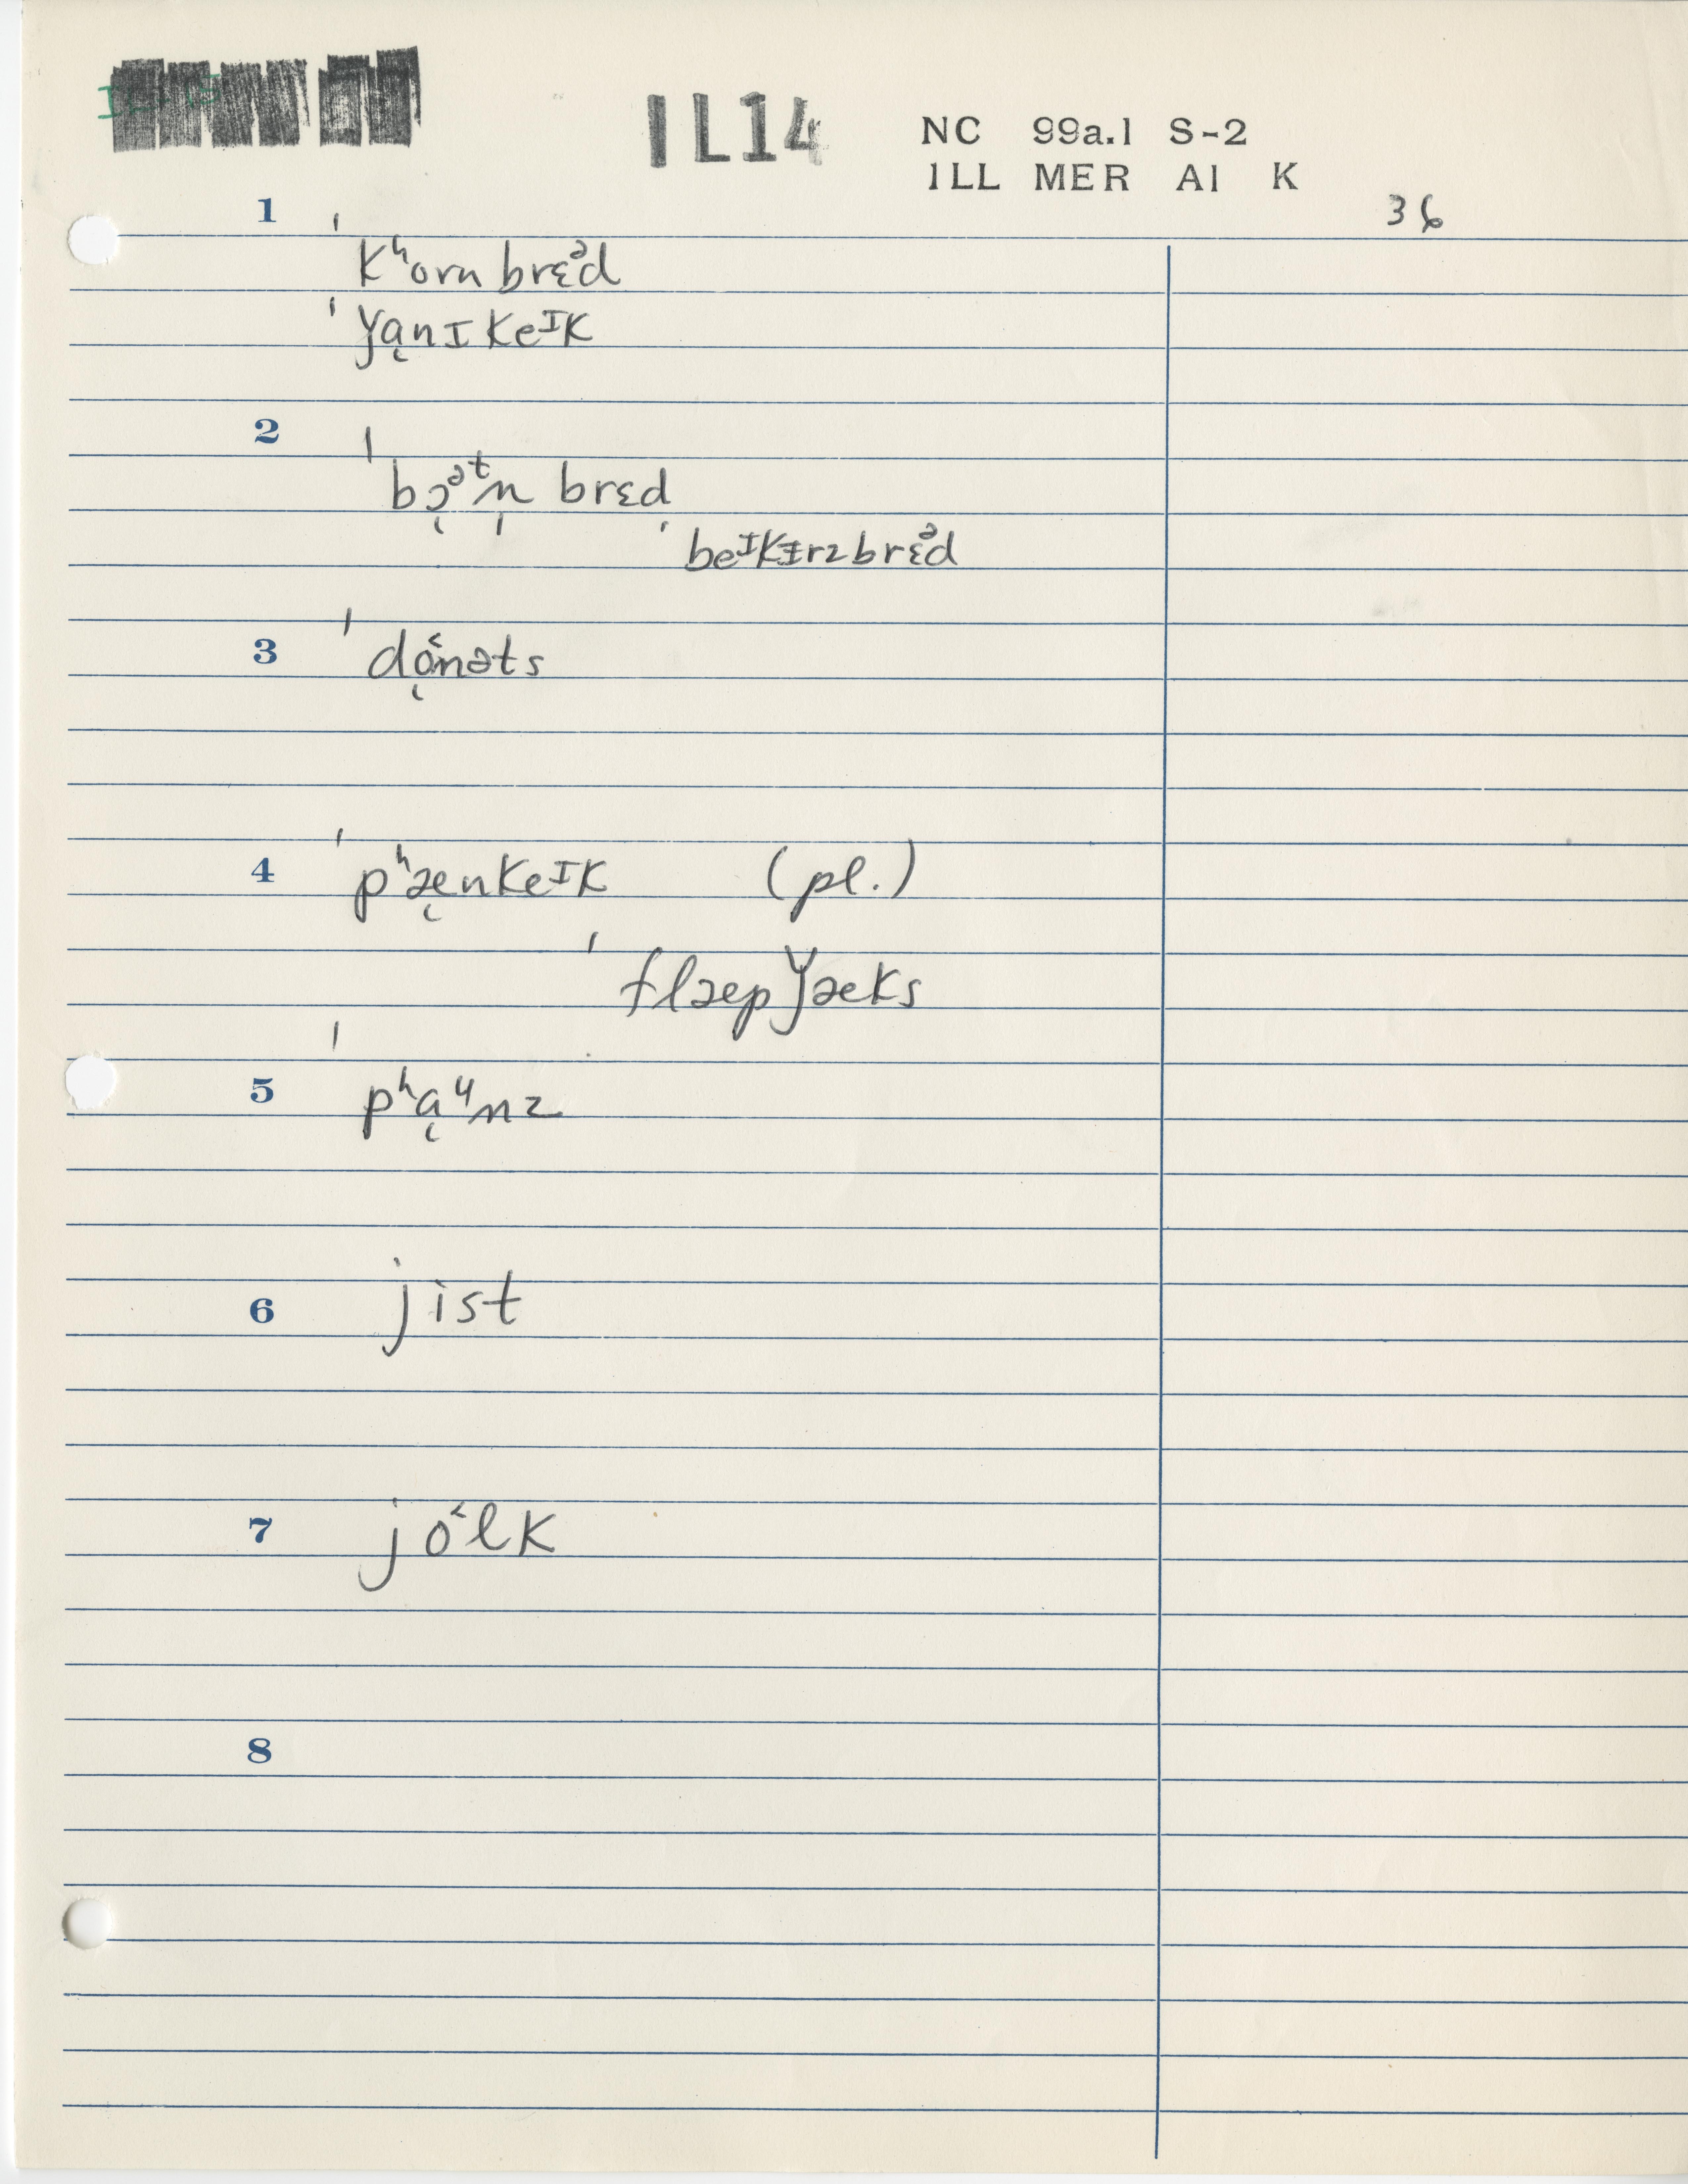 IL14
NC 99a.1 S-2
ILL MER A1 K
36
1 ˈkʰorn brɛᵊd
ˈǰɑ̨nɪ keᴵk
2 ˈbɔ̨ᵊᵗn̩ brɛd
ˈbeᴵkɨrz brɛᵊd
3 ˈdǫ˂nəts
4 ˈpʰæ̨nkeᴵk (pl.)
ˈflæpǰæks
5 ˈpʰɑ̨ᵘnz
6 jist
7 jo˂lk
8